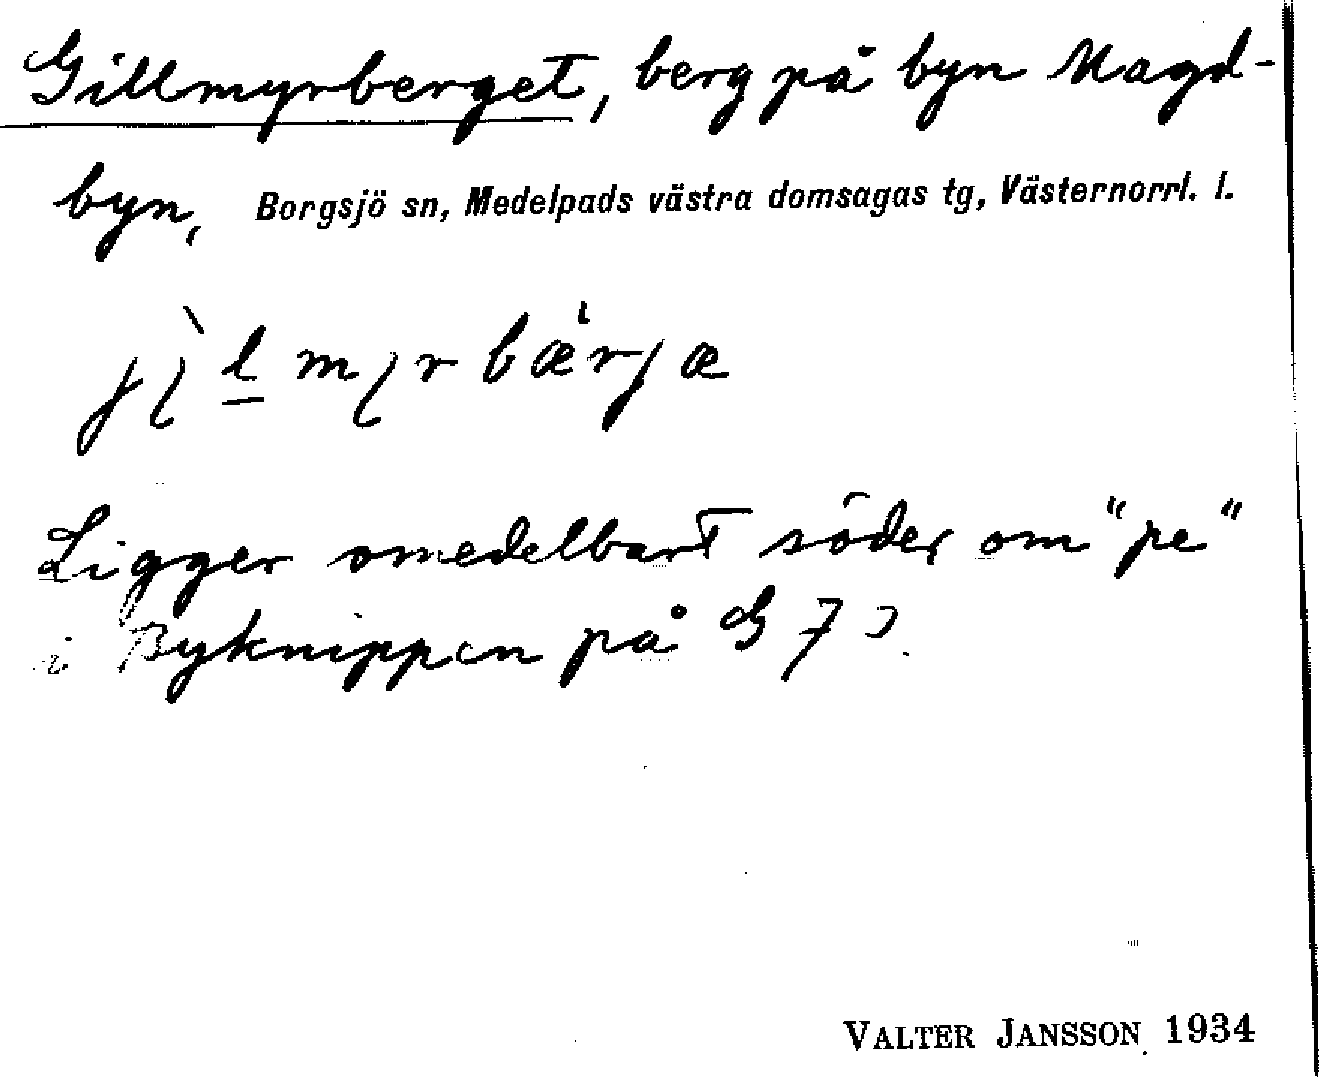 Gillmyrberget, berg på byn Magd-
byn, Borgsjö sn, Medelpads västra domsagas tg, Västernorrl. l.
Ligger omedelbart söder om "pe"
i Byknippen på G 7
VALTER JANSSON 1934